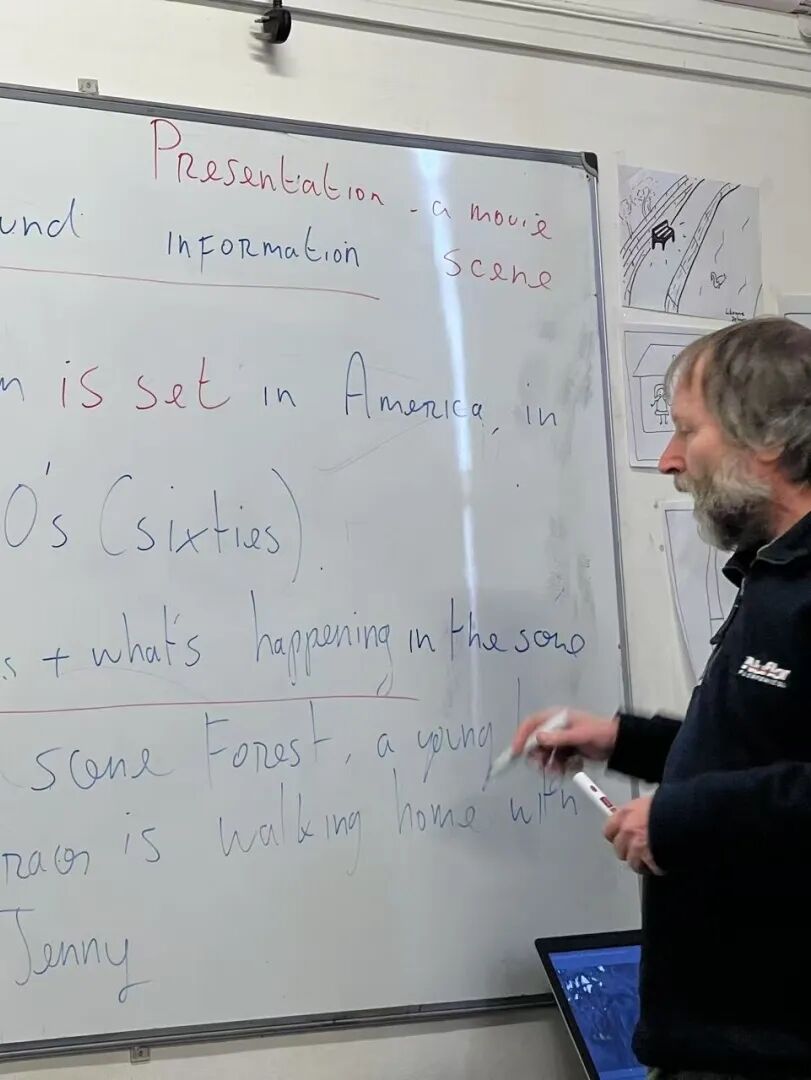 Presentation - a movie
scene
und information
n is set in America, in
0's (sixties).
s + what's happening in the scne
scene Forest, a young
is walking home with
Jenny